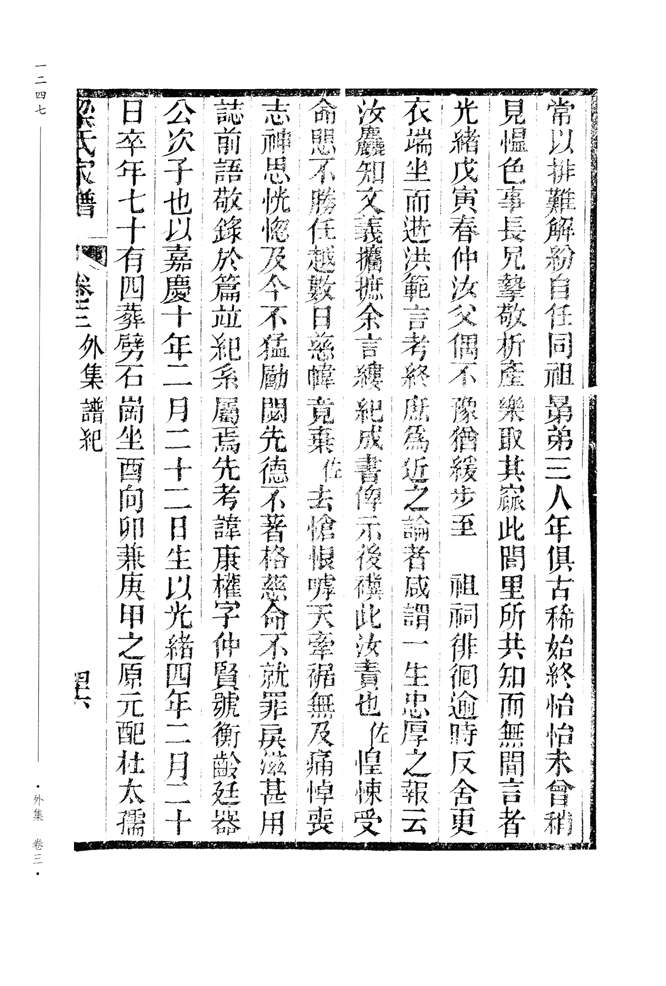 常以排難解紛自任同祖晜弟三人年俱古稀始終怡怡未曾稍
見愠色事長兄摯敬析產樂取其窳此閭里所共知而無間言者
光緒戊寅春仲汝父偶不豫猶緩步至　祖祠徘徊逾時反舍更
衣端坐而逝洪範言考終庶為近之論者咸謂一生忠厚之報云
汝麤知文義攟摭余言縷紀成書俾示後禩此汝責也佐惶悚受
命思不勝任越數日慈幃竟棄佐去愴恨嘑天牽裾無及痛悼喪
志神思恍惚及今不猛勵闕先德不著格慈命不就罪戾滋甚用
誌前語敬錄於篇竝紀系屬焉先考諱康權字仲賢號衡齡廷器
公次子也以嘉慶十年二月二十二日生以光緒四年二月二十
日卒年七十有四葬劈石崗坐酉向卯兼庚甲之原元配杜太孺
梁氏家譜　卷三　外集　譜紀　四六
一二四七
·外集　卷三·